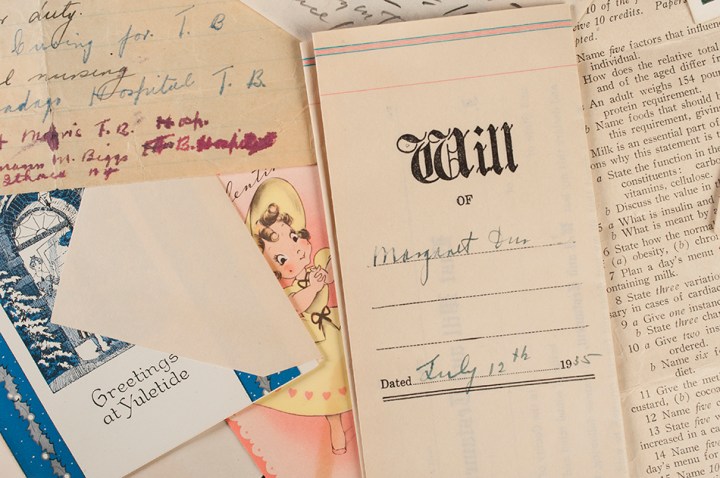 r duty.
nursing for T. B
l nursing
Hospital T. B.
Morris T. B. Hosp.
mann M. Biggs T. B. Hospital
Ithaca NY
Greetings
at Yuletide
Will
OF
Margaret
Dated July 12th 1935
10 of the
ive 10 credits. Paper
pted.
Name five factors that influen
individual.
How does the relative total
and of the aged differ fr
An adult weighs 154 pou
protein requirement.
b Name foods that should b
this requirement, givin
Milk is an essential part of
ons why this statement is
a State the function in the
constituents: carb
vitamins, cellulose.
b Discuss the value in
5 a What is insulin and
b What is meant by
6 State how the norma
(a) obesity, (b) chro
7 Plan a day's menu
ontaining milk.
8 State three variatio
sary in cases of cardiac
9 a Give one instanc
b State three chan
10 a Give two inst
ordered.
b Name six
diet.
11 Give the met
custard, (b) coco
12 Name five
13 State five w
increased in a ca
14 Name five
day's menu for
15 Name 10